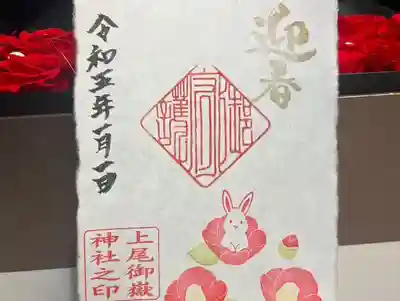 迎春
令和五年一月一日
上尾御嶽
神社之印